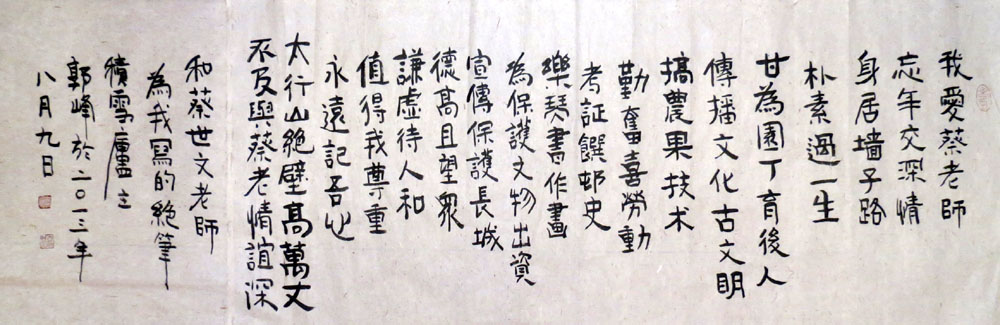 我愛蔡老師
忘年交深情
身居墙子路
朴素過一生
甘為園丁育後人
傳播文化古文明
搞農果技术
勤奮喜勞動
考証饌邨史
樂琴書作畫
為保護文物出資
宣傳保護長城
德高且望眾
謙虛待人和
值得我尊重
永遠記吾心
太行山絶壁高萬丈
不及與蔡老情誼深
和蔡世文老師
為我寫的絕筆
積雪廬主
郭峰於二〇一三年
八月九日